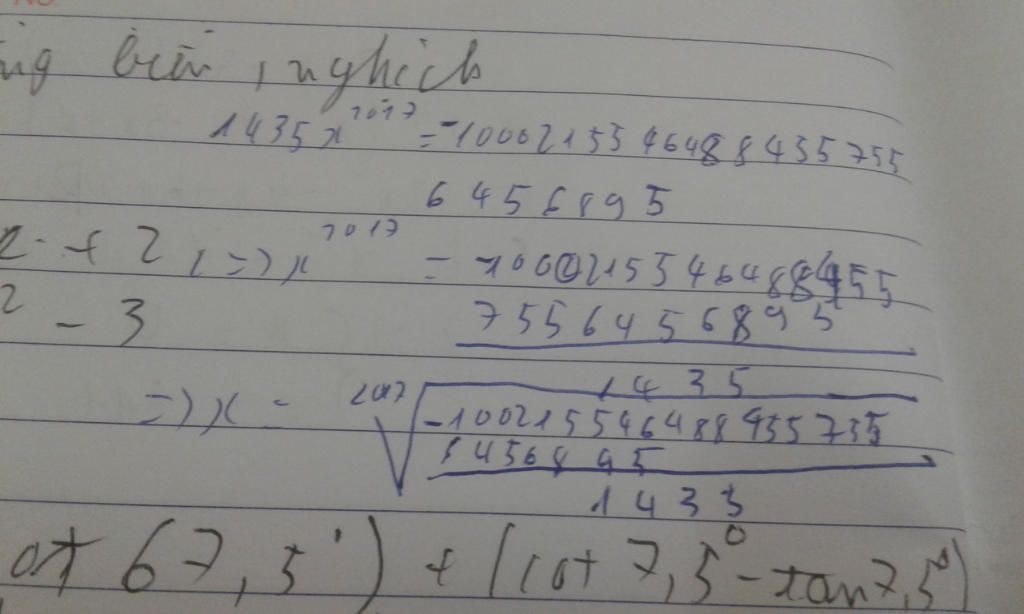 biến, nghịch
1435x^2017 = -1000215546488435755
6456895
+ 2, => x^2017 = -1000215546488455
2 - 3 7556456895
1435
=> x = 2017√ -100215546488455735
6456895
1435
ot 67,5°) + (cot 7,5° - tan 7,5°)